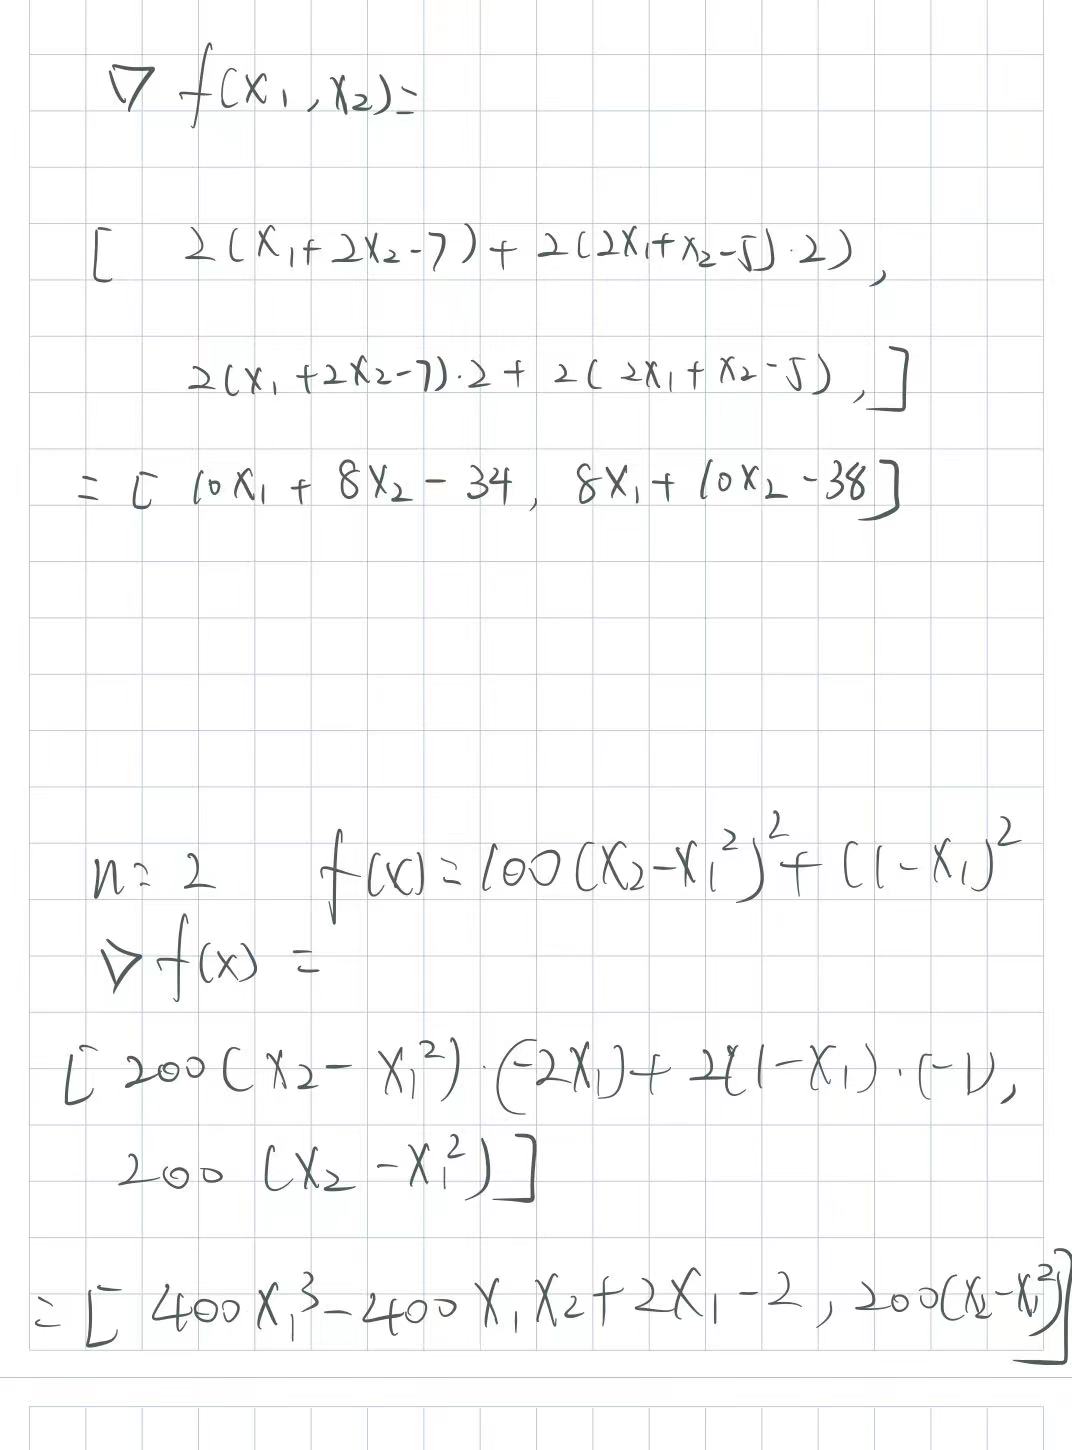 ∇ f(x₁,x₂)=
[ 2(x₁+2x₂-7)+2(2x₁+x₂-5)·2),
2(x₁+2x₂-7)·2+2(2x₁+x₂-5),]
=[10x₁+8x₂-34, 8x₁+10x₂-38]
n=2 f(x)=100(x₂-x₁²)²+(1-x₁)²
∇f(x) =
[200(x₂-x₁²)·(-2x₁)+2(1-x₁)·(-1),
200(x₂-x₁²)]
=[400x₁³-400x₁x₂+2x₁-2,200(x₂-x₁²)]